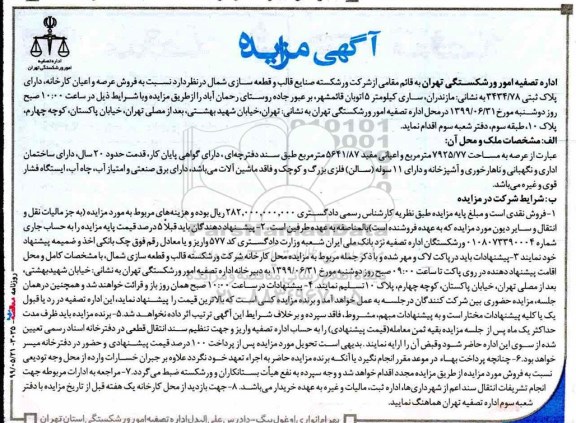 آگهی مزایده
اداره تصفیه
امور ورشکستگی تهران
اداره تصفیه امور ورشکستگی تهران به قائم مقامی از شرکت ورشکسته صنایع قالب و قطعه سازی شمال در نظر دارد نسبت به فروش عرصه و اعیان کارخانه، دارای
پلاک ثبتی ۳۴۳۴/۷۸ به نشانی: مازندران، ساری کیلومتر ۱۵ اتوبان قائمشهر، بر عبور جاده روستای رحمان آباد را از طریق مزایده و با شرایط ذیل در ساعت ۱۰:۰۰ صبح
روز دوشنبه مورخ ۱۳۹۹/۰۶/۳۱ در محل اداره تصفیه امور ورشکستگی تهران به نشانی: تهران، خیابان شهید بهشتی، بعد از مصلی تهران، خیابان پاکستان، کوچه چهارم،
پلاک ۱۰، طبقه سوم، دفتر شعبه سوم اقدام نماید.
الف: مشخصات ملک و محل آن:
عبارت از عرصه به مساحت ۷۹۲۵/۷۷ متر مربع و اعیانی مفید ۵۶۴۱/۸۷ متر مربع طبق سند دفترچه‌ای، دارای گواهی پایان کار، قدمت حدود ۲۰ سال، دارای ساختمان
اداری و نگهبانی و ناهارخوری و آشپزخانه و دارای ۱۱ سوله (سالن) فلزی بزرگ و کوچک و فاقد ماشین آلات می‌باشد، دارای برق صنعتی و امتیاز آب، چاه آب، ایستگاه فشار
قوی و غیره می‌باشد.
ب: شرایط شرکت در مزایده
۱- فروش نقدی است و مبلغ پایه مزایده طبق نظریه کارشناس رسمی دادگستری ۲۸۲,۰۰۰,۰۰۰,۰۰۰ ریال بوده و هزینه‌های مربوط به مورد مزایده (به جز مالیات نقل و
انتقال و سایر دیون مورد مزایده که به عهده فروشنده است) بالمناصفه به عهده طرفین است. ۲- پیشنهاد دهندگان باید قبلاً ۵ درصد قیمت پایه مزایده را به حساب جاری
شماره ۰۱۰۸۰۷۳۳۹۰۰۰۴ ورشکستگان اداره تصفیه نزد بانک ملی ایران شعبه وزارت دادگستری کد ۵۷۷ واریز و یا معادل رقم فوق چک بانکی اخذ و ضمیمه پیشنهاد
خود نمایند ۳- پیشنهادات باید در پاکت لاک و مهر شده و با ذکر جمله مربوط به مزایده محل کارخانه شرکت ورشکسته قالب و قطعه سازی شمال، با مشخصات کامل و محل
اقامت پیشنهاد دهنده در روی پاکت تا ساعت ۰۹:۰۰ صبح روز دوشنبه مورخ ۱۳۹۹/۰۶/۳۱ به دبیرخانه اداره تصفیه امور ورشکستگی تهران به نشانی: خیابان شهید بهشتی،
بعد از مصلی تهران، خیابان پاکستان، کوچه چهارم، پلاک ۱۰ تسلیم نمایند. ۴- پیشنهادات در ساعت ۱۰:۰۰ صبح همان روز باز و قرائت خواهند شد و همچنین در همان
جلسه، مزایده حضوری بین شرکت کنندگان در جلسه به عمل خواهد آمد و برنده مزایده کسی است که بالاترین قیمت را پیشنهاد نماید، این اداره تصفیه در رد یا قبول
یک یا کلیه پیشنهادات مختار است و به پیشنهادات مبهم، مشروط، فاقد سپرده و بر خلاف شرایط این آگهی ترتیب اثر داده نخواهد شد. ۵- برنده مزایده باید ظرف مدت
حداکثر یک ماه پس از جلسه مزایده بقیه ثمن معامله (قیمت پیشنهادی) را به حساب اداره تصفیه واریز و جهت تنظیم سند انتقال قطعی در دفترخانه اسناد رسمی تعیین
شده از سوی این اداره حاضر شود و قبض آن را ارایه نمایند. بدیهی است تحویل مورد مزایده پس از پرداخت ۱۰۰ درصد قیمت پیشنهادی و حضور در دفترخانه میسر
خواهد بود. ۶- چنانچه پرداخت بهاء در موعد مقرر انجام نگیرد یا آنکه برنده مزایده حاضر به اجراء تعهد خود نگردد علاوه بر جبران خسارات وارده از محل وجه تودیعی
نسبت به فروش مورد مزایده از طریق مزایده مجدد اقدام خواهد شد و وجه سپرده به نفع هیأت بستانکاران و ورشکسته ضبط می گردد. ۷- مراجعه به ادارات مربوطه جهت
انجام تشریفات انتقال سند اعم از شهرداری‌ها، اداره ثبت، مالیات و غیره به عهده خریدار می‌باشد. ۸- جهت بازدید از محل کارخانه یک هفته قبل از تاریخ مزایده با دفتر
شعبه سوم اداره تصفیه تهران هماهنگ نمایید.